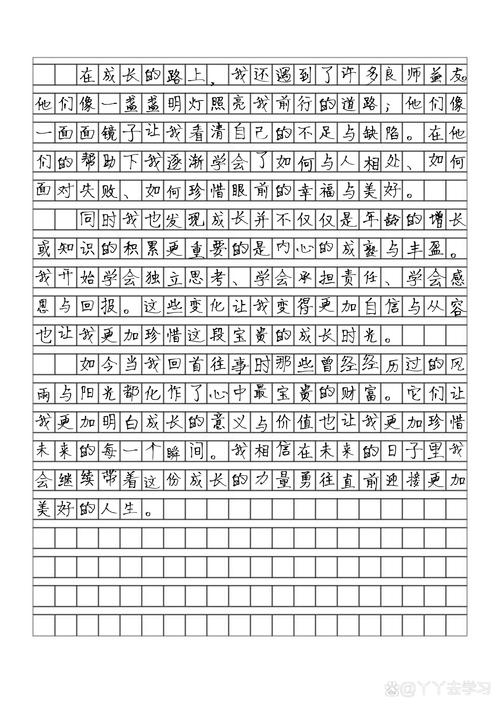 在成长的路上，我还遇到了许多良师益友。
他们像一盏盏明灯照亮我前行的道路；他们像
一面面镜子让我看清自己的不足与缺陷。在他
们的帮助下我逐渐学会了如何与人相处、如何
面对失败、如何珍惜眼前的幸福与美好。
同时我也发现成长并不仅仅是年龄的增长
或知识的积累更重要的是内心的成熟与丰盈。
我开始学会独立思考、学会承担责任、学会感
恩与回报。这些变化让我变得更加自信与从容
也让我更加珍惜这段宝贵的成长时光。
如今当我回首往事时那些曾经经历过的风
雨与阳光都化作了心中最宝贵的财富。它们让
我更加明白成长的意义与价值也让我更加珍惜
未来的每一个瞬间。我相信在未来的日子里我
会继续带着这份成长的力量勇往直前迎接更加
美好的人生。
丫丫去学习